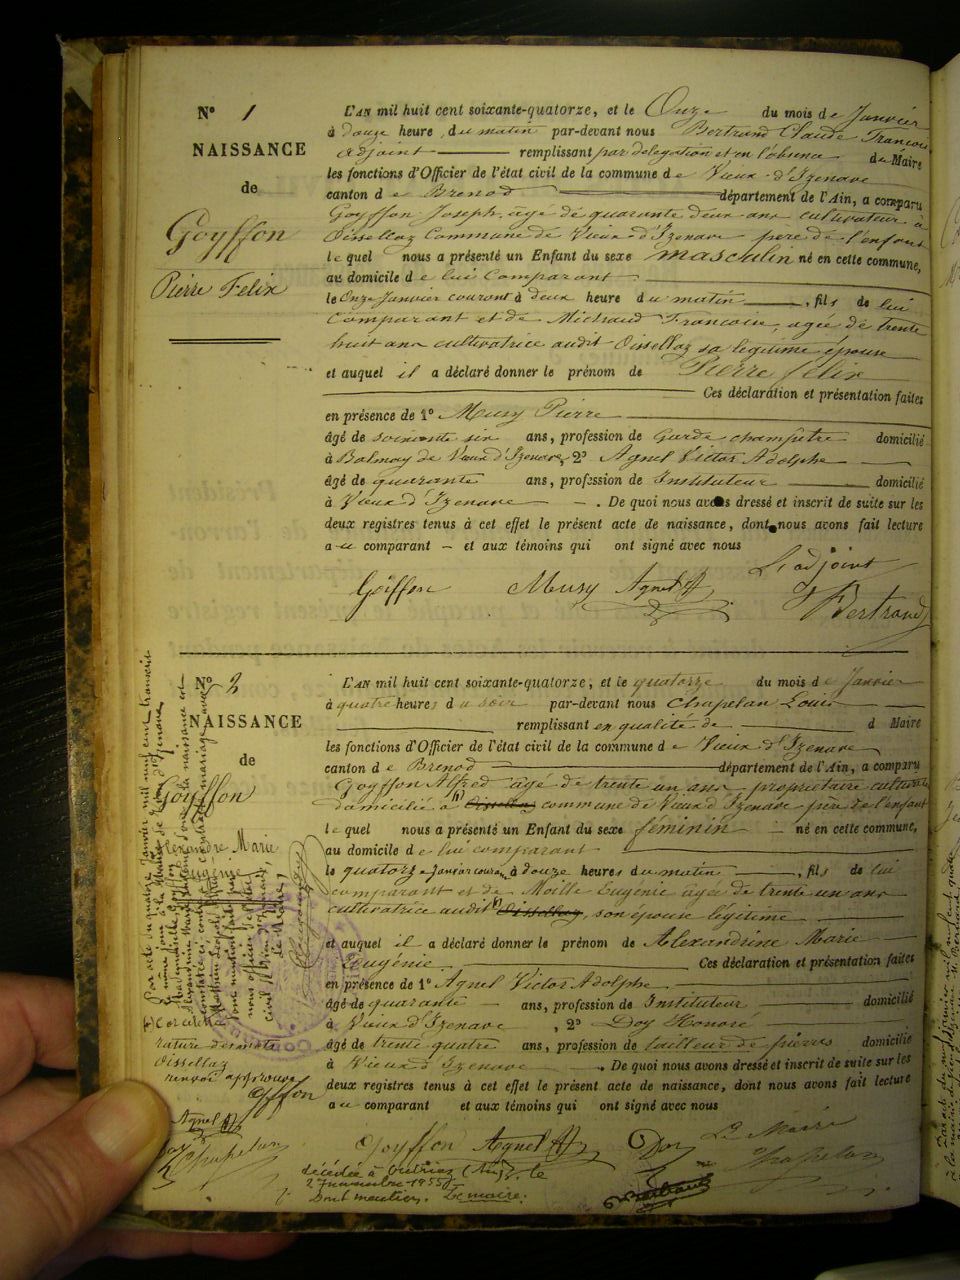 N° 1
NAISSANCE
de
Goyffon
Pierre Felix
L'AN mil huit cent soixante-quatorze, et le Onze du mois de Janvier
à douze heure du matin par-devant nous Bertrand Claude François
adjoint remplissant par delegation et en l'absence du Maire
les fonctions d'Officier de l'état civil de la commune de Vieux-d'Izenave
canton de Brenod département de l'Ain, a comparu
Goyffon Joseph agé de quarante deux ans cultivateur à
Oissellaz Commune de Vieux d'Izenave père de l'enfant
lequel nous a présenté un Enfant du sexe masculin né en cette commune,
au domicile de lui Comparant
le Onze Janvier courant à deux heure du matin, fils de lui
Comparant et de Michaud Francoise, agée de trente
huit ans cultivatrice audit Oissellaz sa légitime épouse
et auquel il a déclaré donner le prénom de Pierre félix
Ces déclaration et présentation faites
en présence de 1° Musy Pierre
âgé de soixante six ans, profession de Garde champêtre domicilié
à Balmay de Vieux d'Izenave, 2° Agnel Victor Adolphe
âgé de quarante ans, profession de Instituteur domicilié
à Vieux d'Izenave. De quoi nous avons dressé et inscrit de suite sur les
deux registres tenus à cet effet le présent acte de naissance, dont nous avons fait lecture
au comparant et aux témoins qui ont signé avec nous
L'adjoint
Goiffon Musy Agnel Bertrand
N° 2
NAISSANCE
de
Goyffon
Alexandre Marie
Eugénie
L'AN mil huit cent soixante-quatorze, et le quatorze du mois de Janvier
à quatre heures du soir par-devant nous Chapelan Louis
remplissant en qualité de d Maire
les fonctions d'Officier de l'état civil de la commune de Vieux d'Izenave
canton de Brenod département de l'Ain, a comparu
Goyffon Alfred agé de trente un ans propriétaire cultivateur
domicilié à Oissellaz commune de Vieux d'Izenave père de l'enfant
lequel nous a présenté un Enfant du sexe féminin né en cette commune,
au domicile de lui comparant
le quatorze Janvier courant à douze heures du matin, fils de lui
comparant et de Moille Eugénie agée de trente un ans
cultivatrice audit Oissellaz, son épouse légitime
et auquel il a déclaré donner le prénom de Alexandrine Marie
Eugénie Ces déclaration et présentation faites
en présence de 1° Agnel Victor Adolphe
âgé de quarante ans, profession de Instituteur domicilié
à Vieux d'Izenave, 2° Doy Honoré
âgé de trente quatre ans, profession de tailleur de pierres domicilié
à Vieux d'Izenave. De quoi nous avons dressé et inscrit de suite sur les
deux registres tenus à cet effet le présent acte de naissance, dont nous avons fait lecture
au comparant et aux témoins qui ont signé avec nous
rature des mots
Oissellaz
renvoi approuvé
Goyffon
Agnel
Doy
Chapelan
Le Maire
Goyffon Agnel Doy Chapelan
décédée à (Ain), le
2 novembre 1955
Dont mention. Le maire.